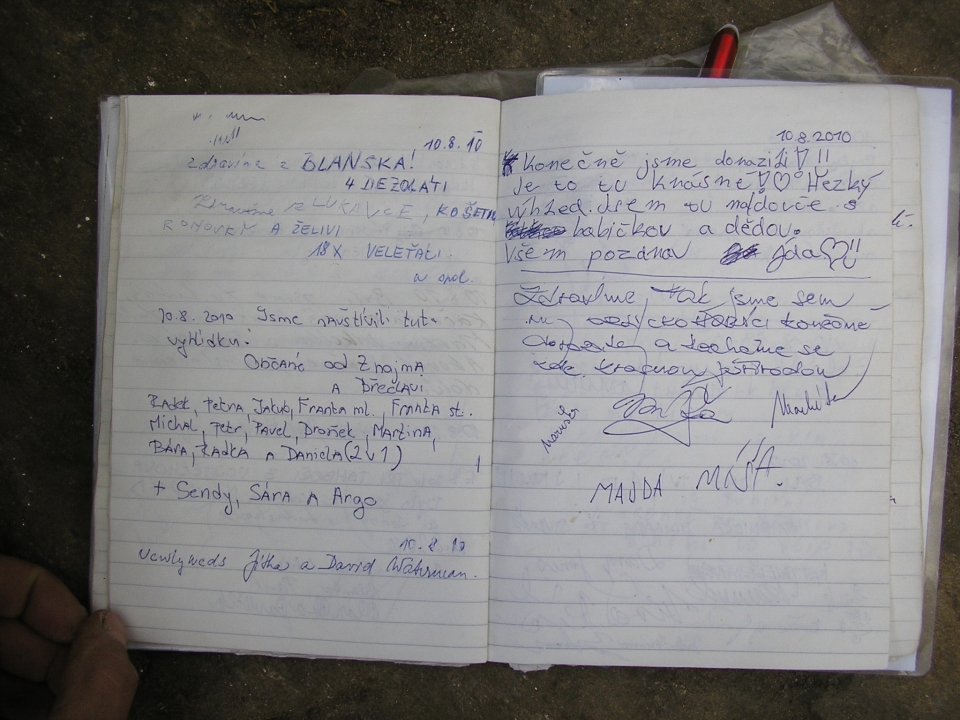 10.8.10
Zdravíme z BLANSKA!
4 DEZOLATI
Zdravíme z LUKAVCE, KOŠETIC
A ŽELIVI
18X VELEŤALI.
a spol.
10.8.2010 Jsme navštívili tuto
vyhlídku.
Občané od Znojma
A Břeclavi
Radek, Petra, Jakub, Franta ml., Franta st.
Michal, Petr, Pavel, Broněk, Martina,
Bára, Radka a Daniela (2v1)
+ Sendy, Sára a Argo
10.8.10
Newlyweds Jitka a David Waterman.
10.8.2010
Konečně jsme dorazili!!!
Je to tu krásné!♡ Hezký
výhled. Jsem tu najdovče s
babičkov a dědov.
Všem pozdrav Jda♡!!
Zdravíme, tak jsme sem
konečně
a kocháme se
zde krásnou přírodou
Markéta
MAJDA MÍŠA.